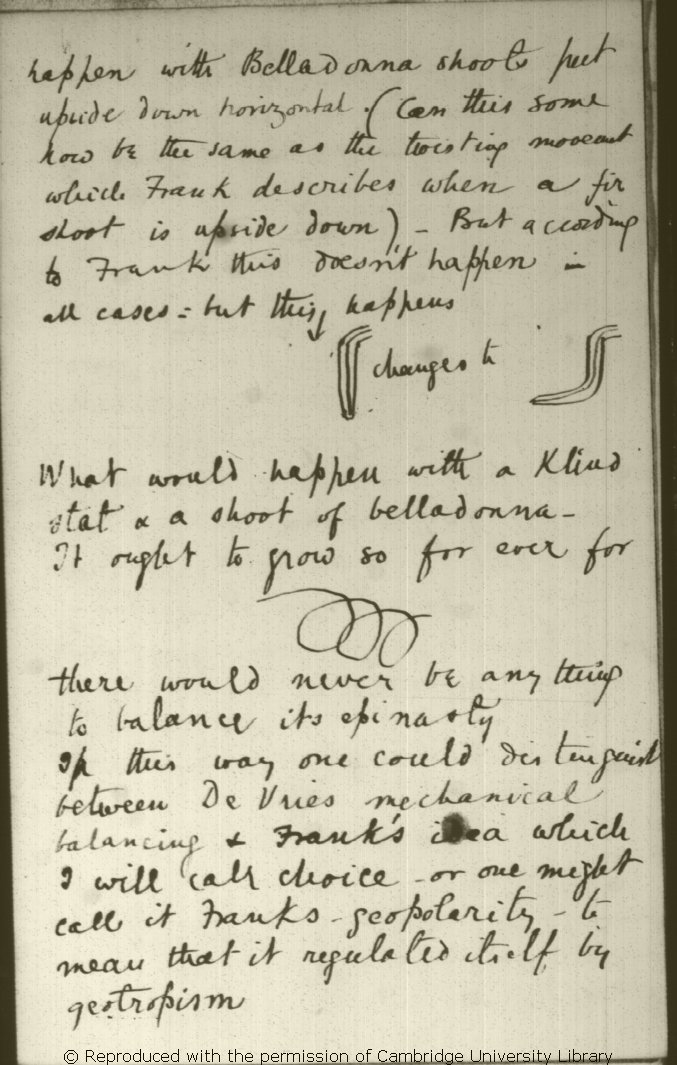 happen with Belladonna shoots put
upside down horizontal. (Can this some
how be the same as the twisting movement
which Frank describes when a fir
shoot is upside down) – But according
to Frank this doesn't happen in
all cases – but this happens
changes to
What would happen with a Klino
stat & a shoot of belladonna –
It ought to grow so for ever for
there would never be anything
to balance its epinasty
In this way one could distinguish
between De Vries mechanical
balancing & Frank's idea which
I will call choice – or one might
call it Franks – geopolarity – to
mean that it regulated itself by
geotropism
© Reproduced with the permission of Cambridge University Library